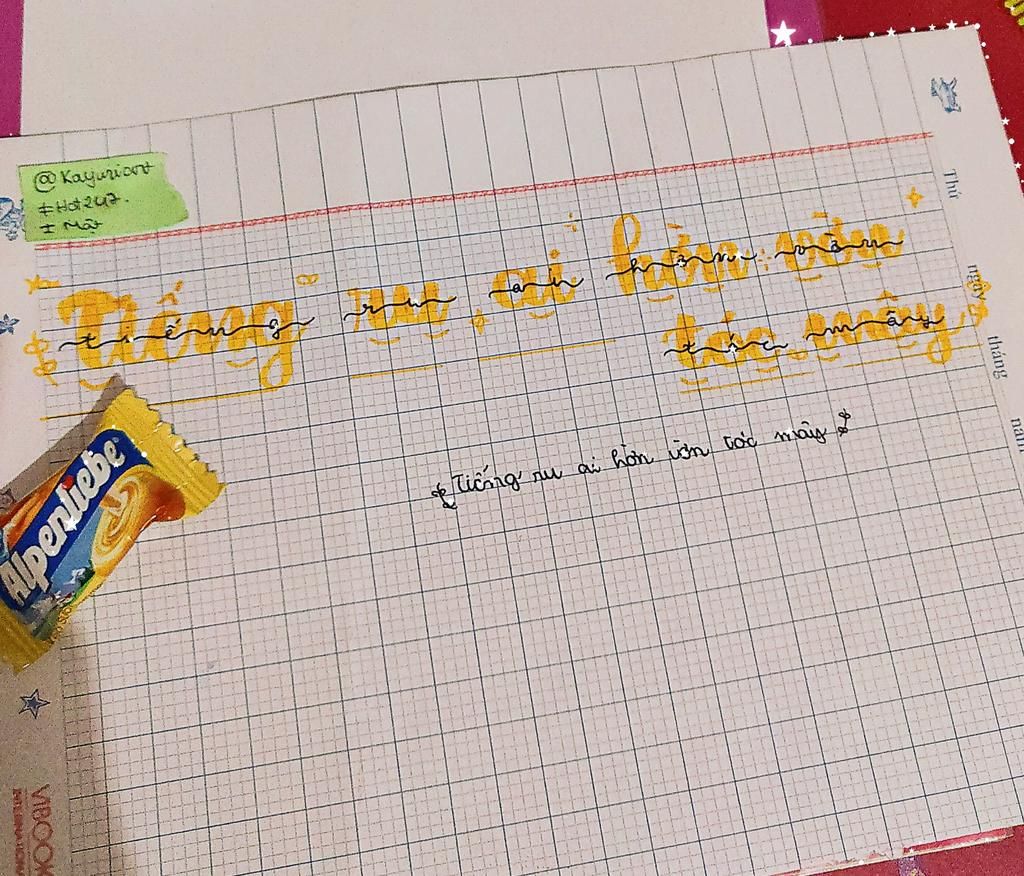 @Kayuriart
#Hot247.
# Mật
Tiếng ru ai hờn vờn
tóc mây
Tiếng ru ai hờn vờn tóc mây
Alpenliebe
Thứ
ngày
tháng
năm
VIBOOK